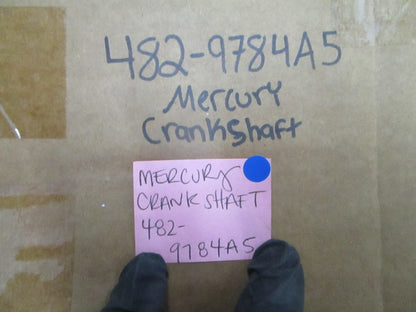 482-9784A5
Mercury
Crankshaft
MERCURY
CRANKSHAFT
482-
9784A5